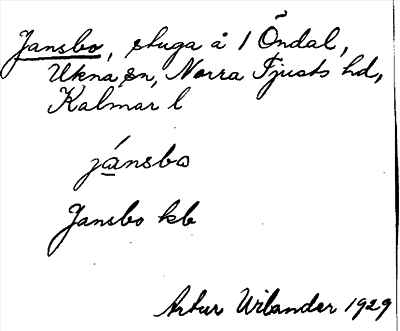 Jansbo, stuga å 1 Öndal,
Ukna sn, Norra Tjusts hd,
Kalmar l
jánsbo
Jansbo kb
Artur Wilander 1929